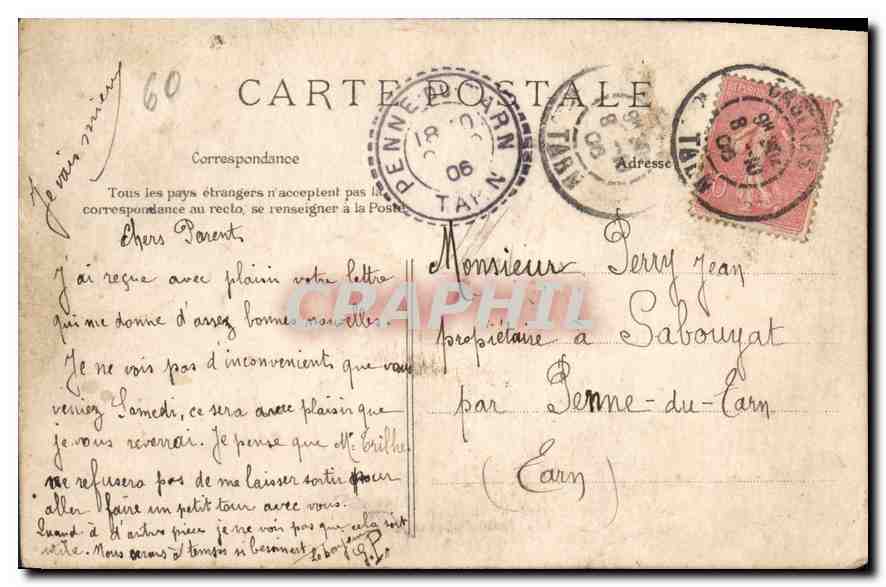 60
Je vais mieux
CARTE POSTALE
Correspondance
Adresse
Tous les pays étrangers n'acceptent pas la
correspondance au recto, se renseigner à la Poste
PENNE-DU-TARN
18
06
TARN
TARN
8
06
TARN
8
06
Chers Parents
J'ai reçue avec plaisir votre lettre
qui me donne d'assez bonnes nouvelles.
Je ne vois pas d'inconvenients que vous
veniez Samedi, ce sera avec plaisir que
je vous reverrai. Je pense que Mr Trilhe
ne refusera pas de me laisser sortir pour
aller faire un petit tour avec vous.
Quand à d'autres pièce je ne vois pas que cela soit
utile. Nous serons à temps si besoin est.
G.P.
Monsieur Perry Jean
propiétaire à Sabouyat
par Penne-du-Tarn
(Tarn)
CPAPHIL